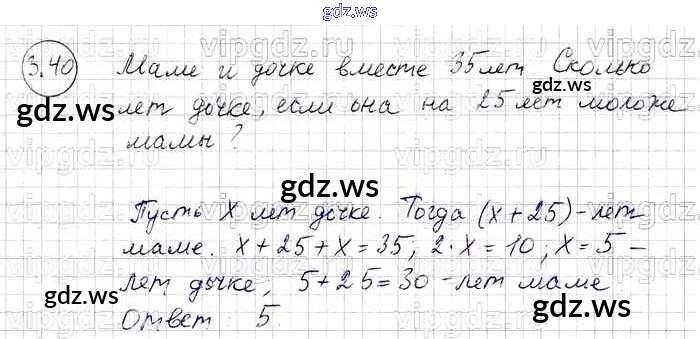 gdz.ws
3.40 Маме и дочке вместе 35 лет Сколько
лет дочке, если она на 25 лет моложе
мамы?
Пусть X лет дочке. Тогда (x+25)-лет
маме. x+25+x=35; 2·x=10; x=5-
лет дочке, 5+25=30-лет маме
Ответ: 5
vipgdz.ws
gdz.ws
gdz.ws
gdz.ws
gdz.ws
gdz.ws